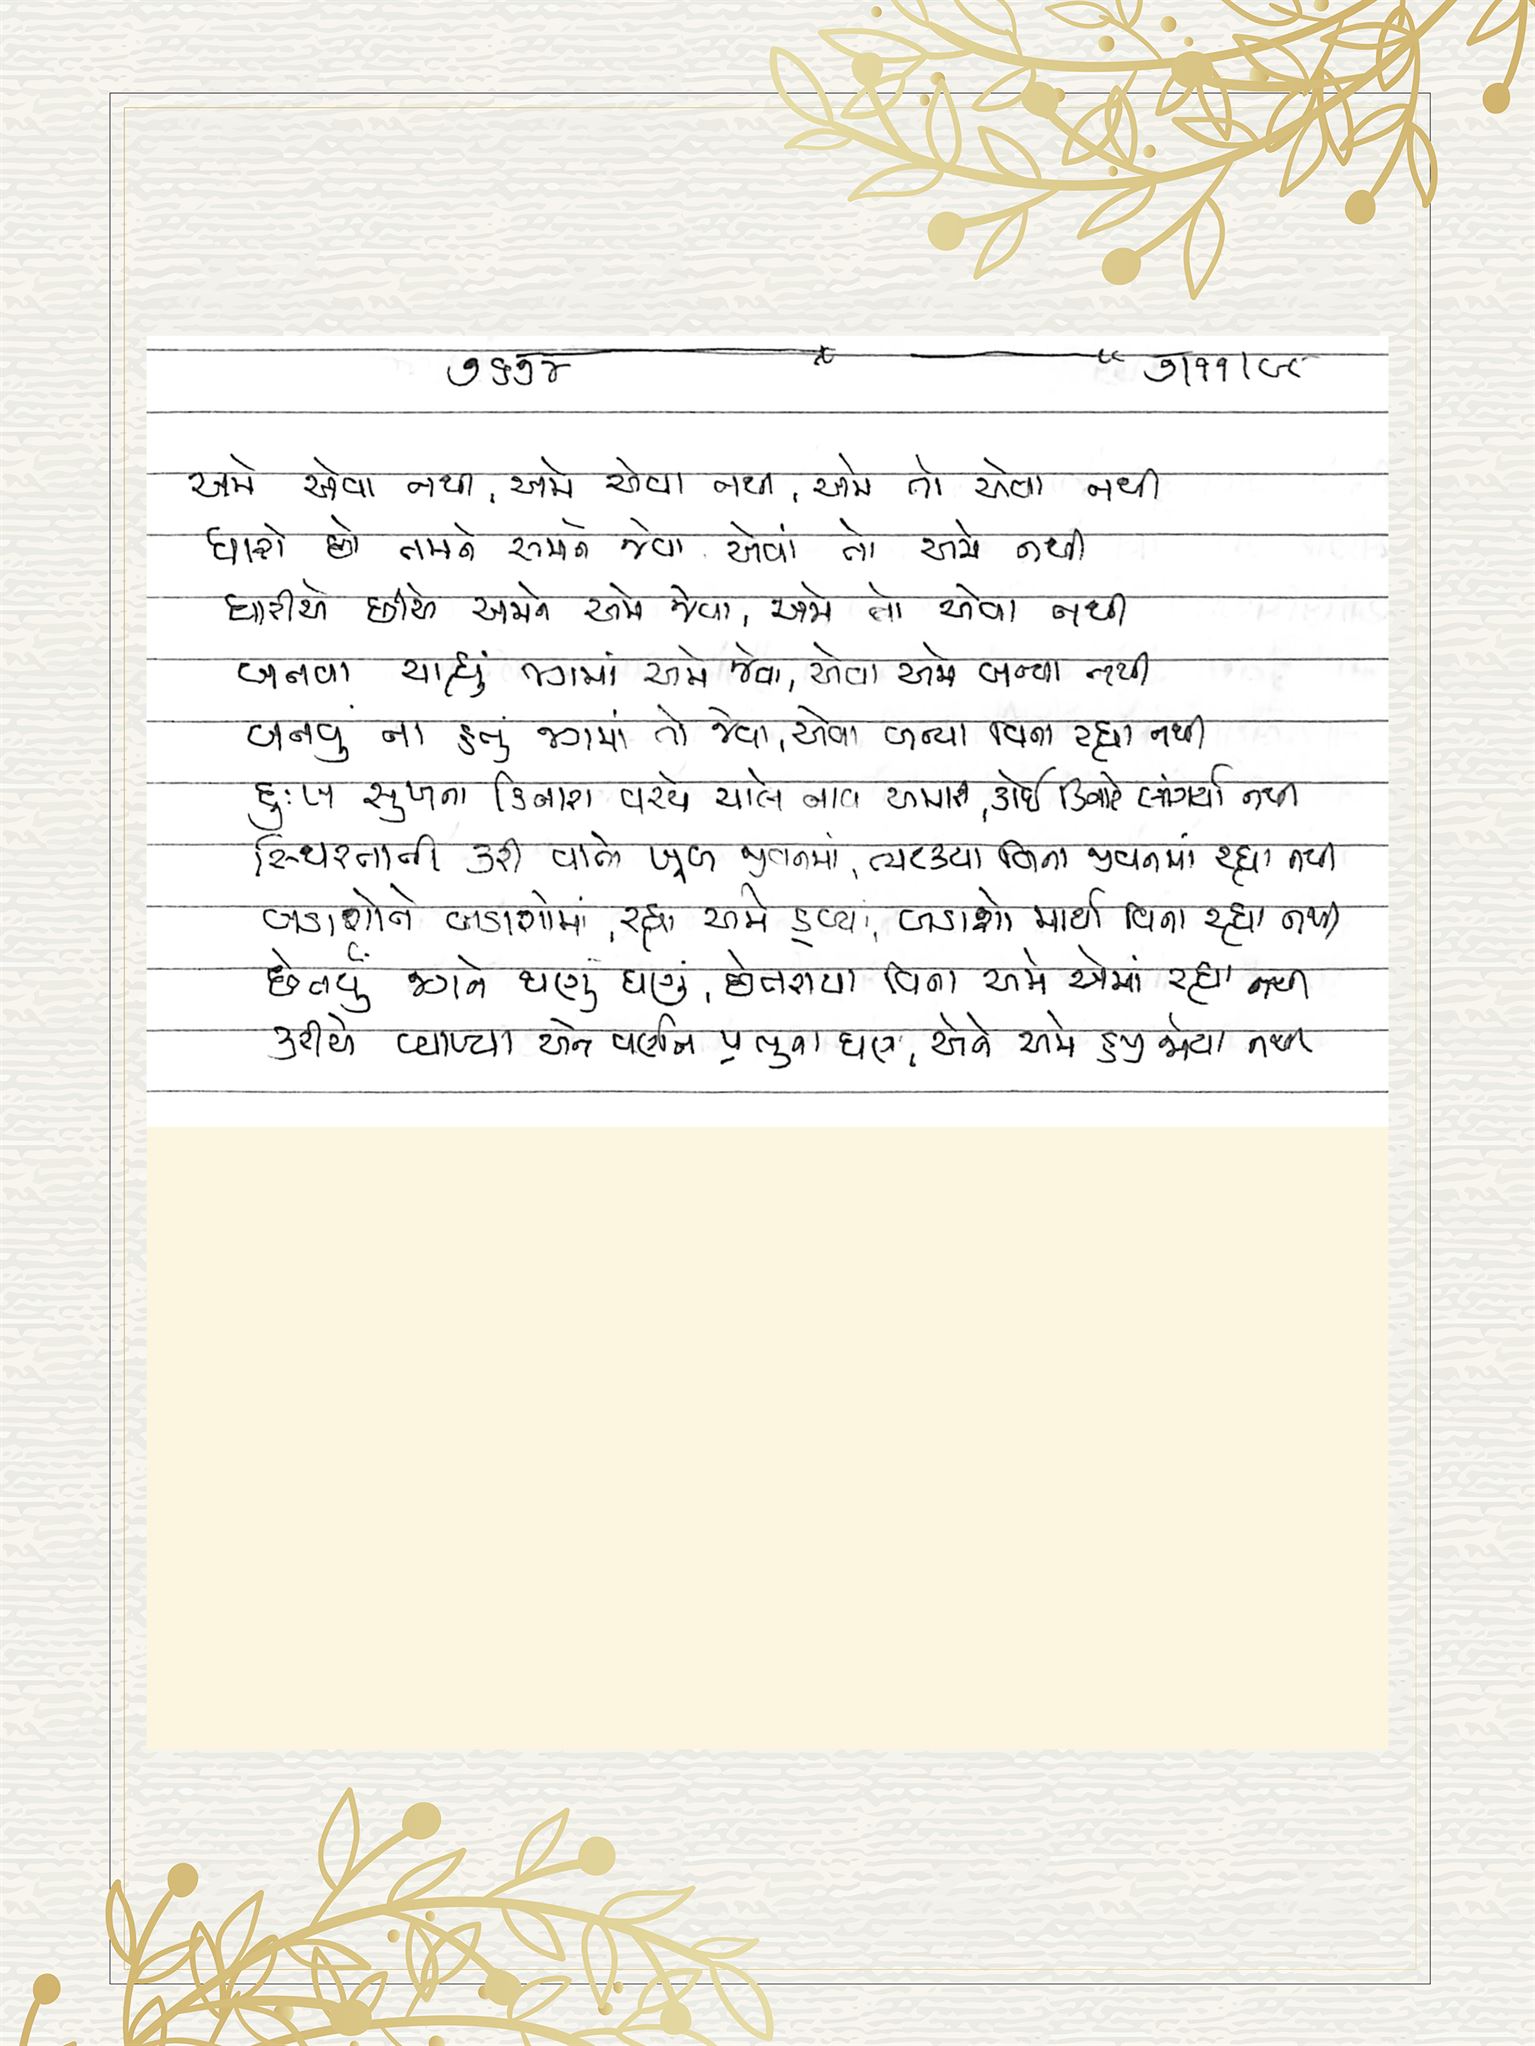 ૭૬૭૪ ૭/૧૧/૯૮
અમે એવા નથી, અમે એવા નથી, અમે તો એવા નથી
ધારો છો તમને અમને જેવા એવાં તો અમે નથી
ધારીએ છીએ અમને અમે જેવા, અમે તો એવા નથી
બનવા ચાહ્યું જગમાં અમે જેવા, એવા અમે બન્યા નથી
બનવું ના હતું જગમાં તો જેવા, એવા બન્યા વિના રહ્યા નથી
દુઃખ સુખના કિનારા વચ્ચે ચાલે નાવ અમારી, કોઈ કિનારે લાંગર્યા નથી
સ્થિરતાની કરી વાતો ખૂબ જીવનમાં, ભટક્યા વિના જીવનમાં રહ્યા નથી
બડાશોને બડાશોમાં, રહ્યા અમે ડૂબ્યાં, બડાશો માર્યા વિના રહ્યા નથી
છેતર્યું જગને ઘણું ઘણું, છેતરાયા વિના અમે એમાં રહ્યા નથી
કરીએ વ્યાખ્યા એને વર્ણન પ્રભુના ઘણા, એને અમે હજી જોયા નથી